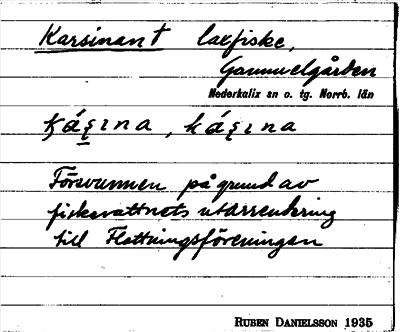 Karsinan † laxfiske,
Gammelgården
Nederkalix sn o. tg. Norrb. län
ḱási̮na, kási̮na
Försvunnen på grund av
fiskevattnets utarrendering
till Flottningsföreningen
RUBEN DANIELSSON 1935